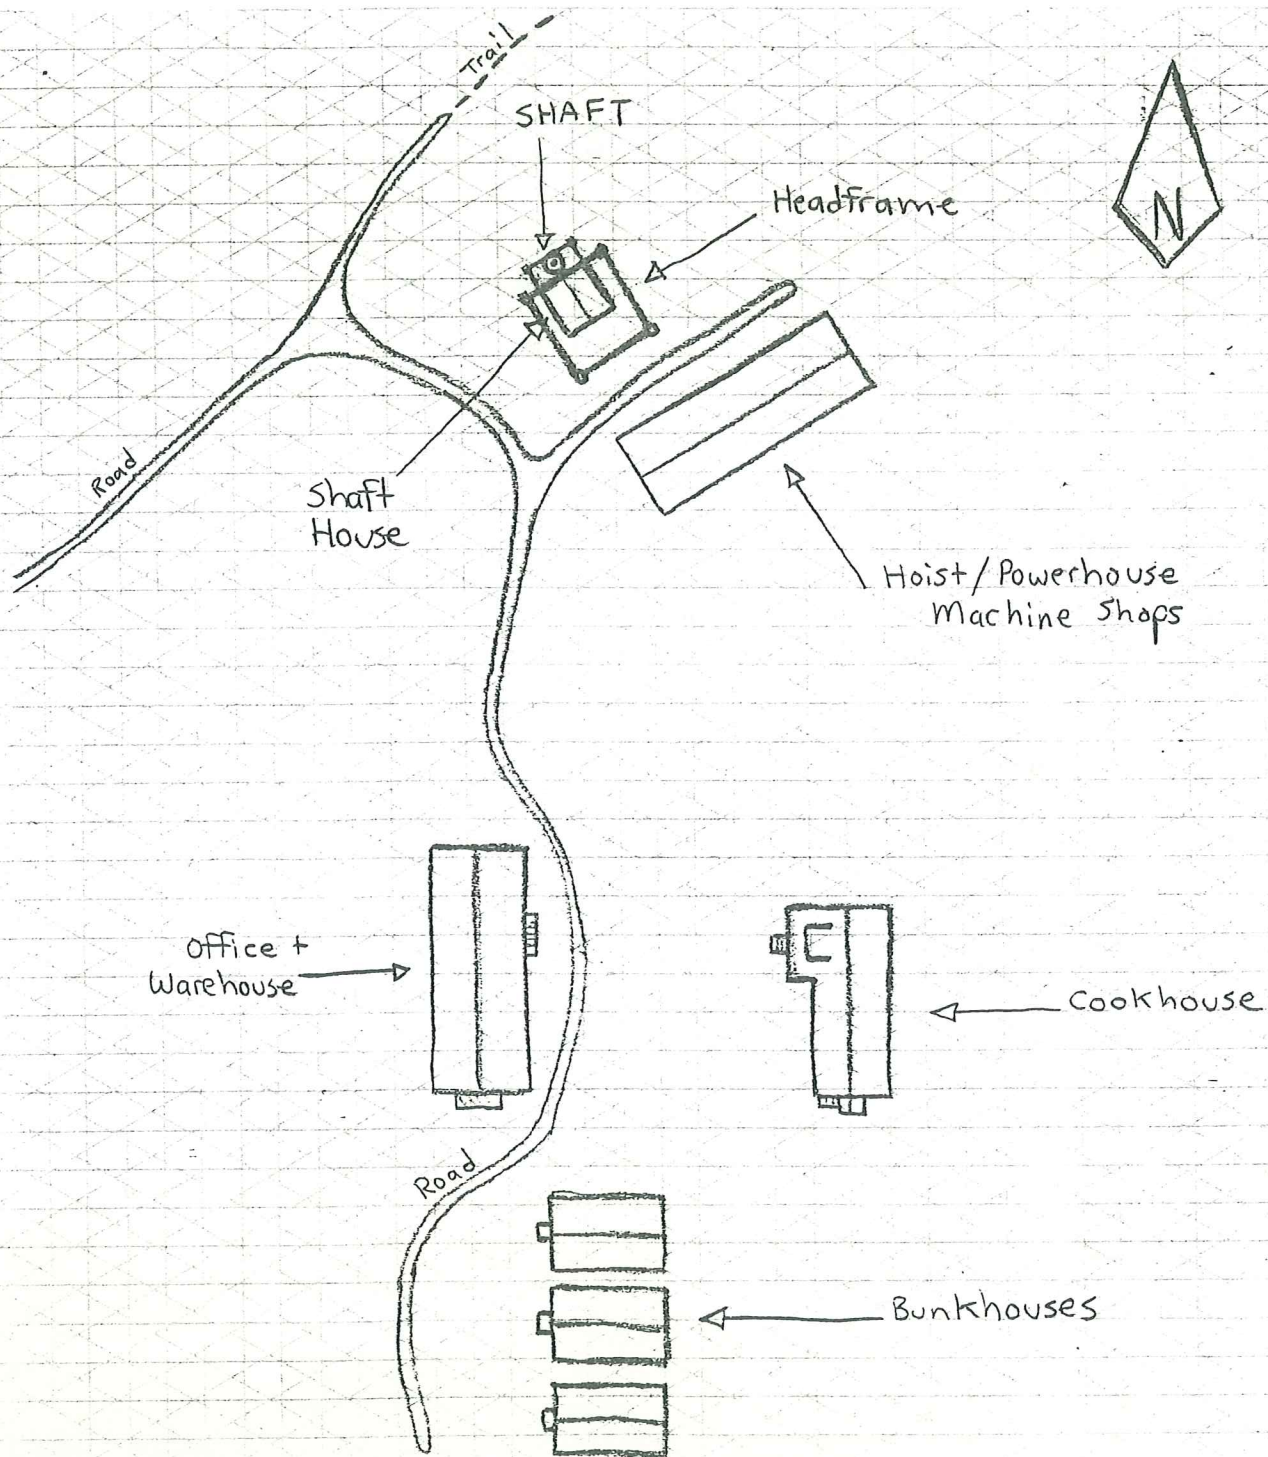 Trail
SHAFT
Headframe
N
Road
Shaft
House
Hoist/Powerhouse
Machine Shops
Office +
Warehouse
Cookhouse
Road
Bunkhouses